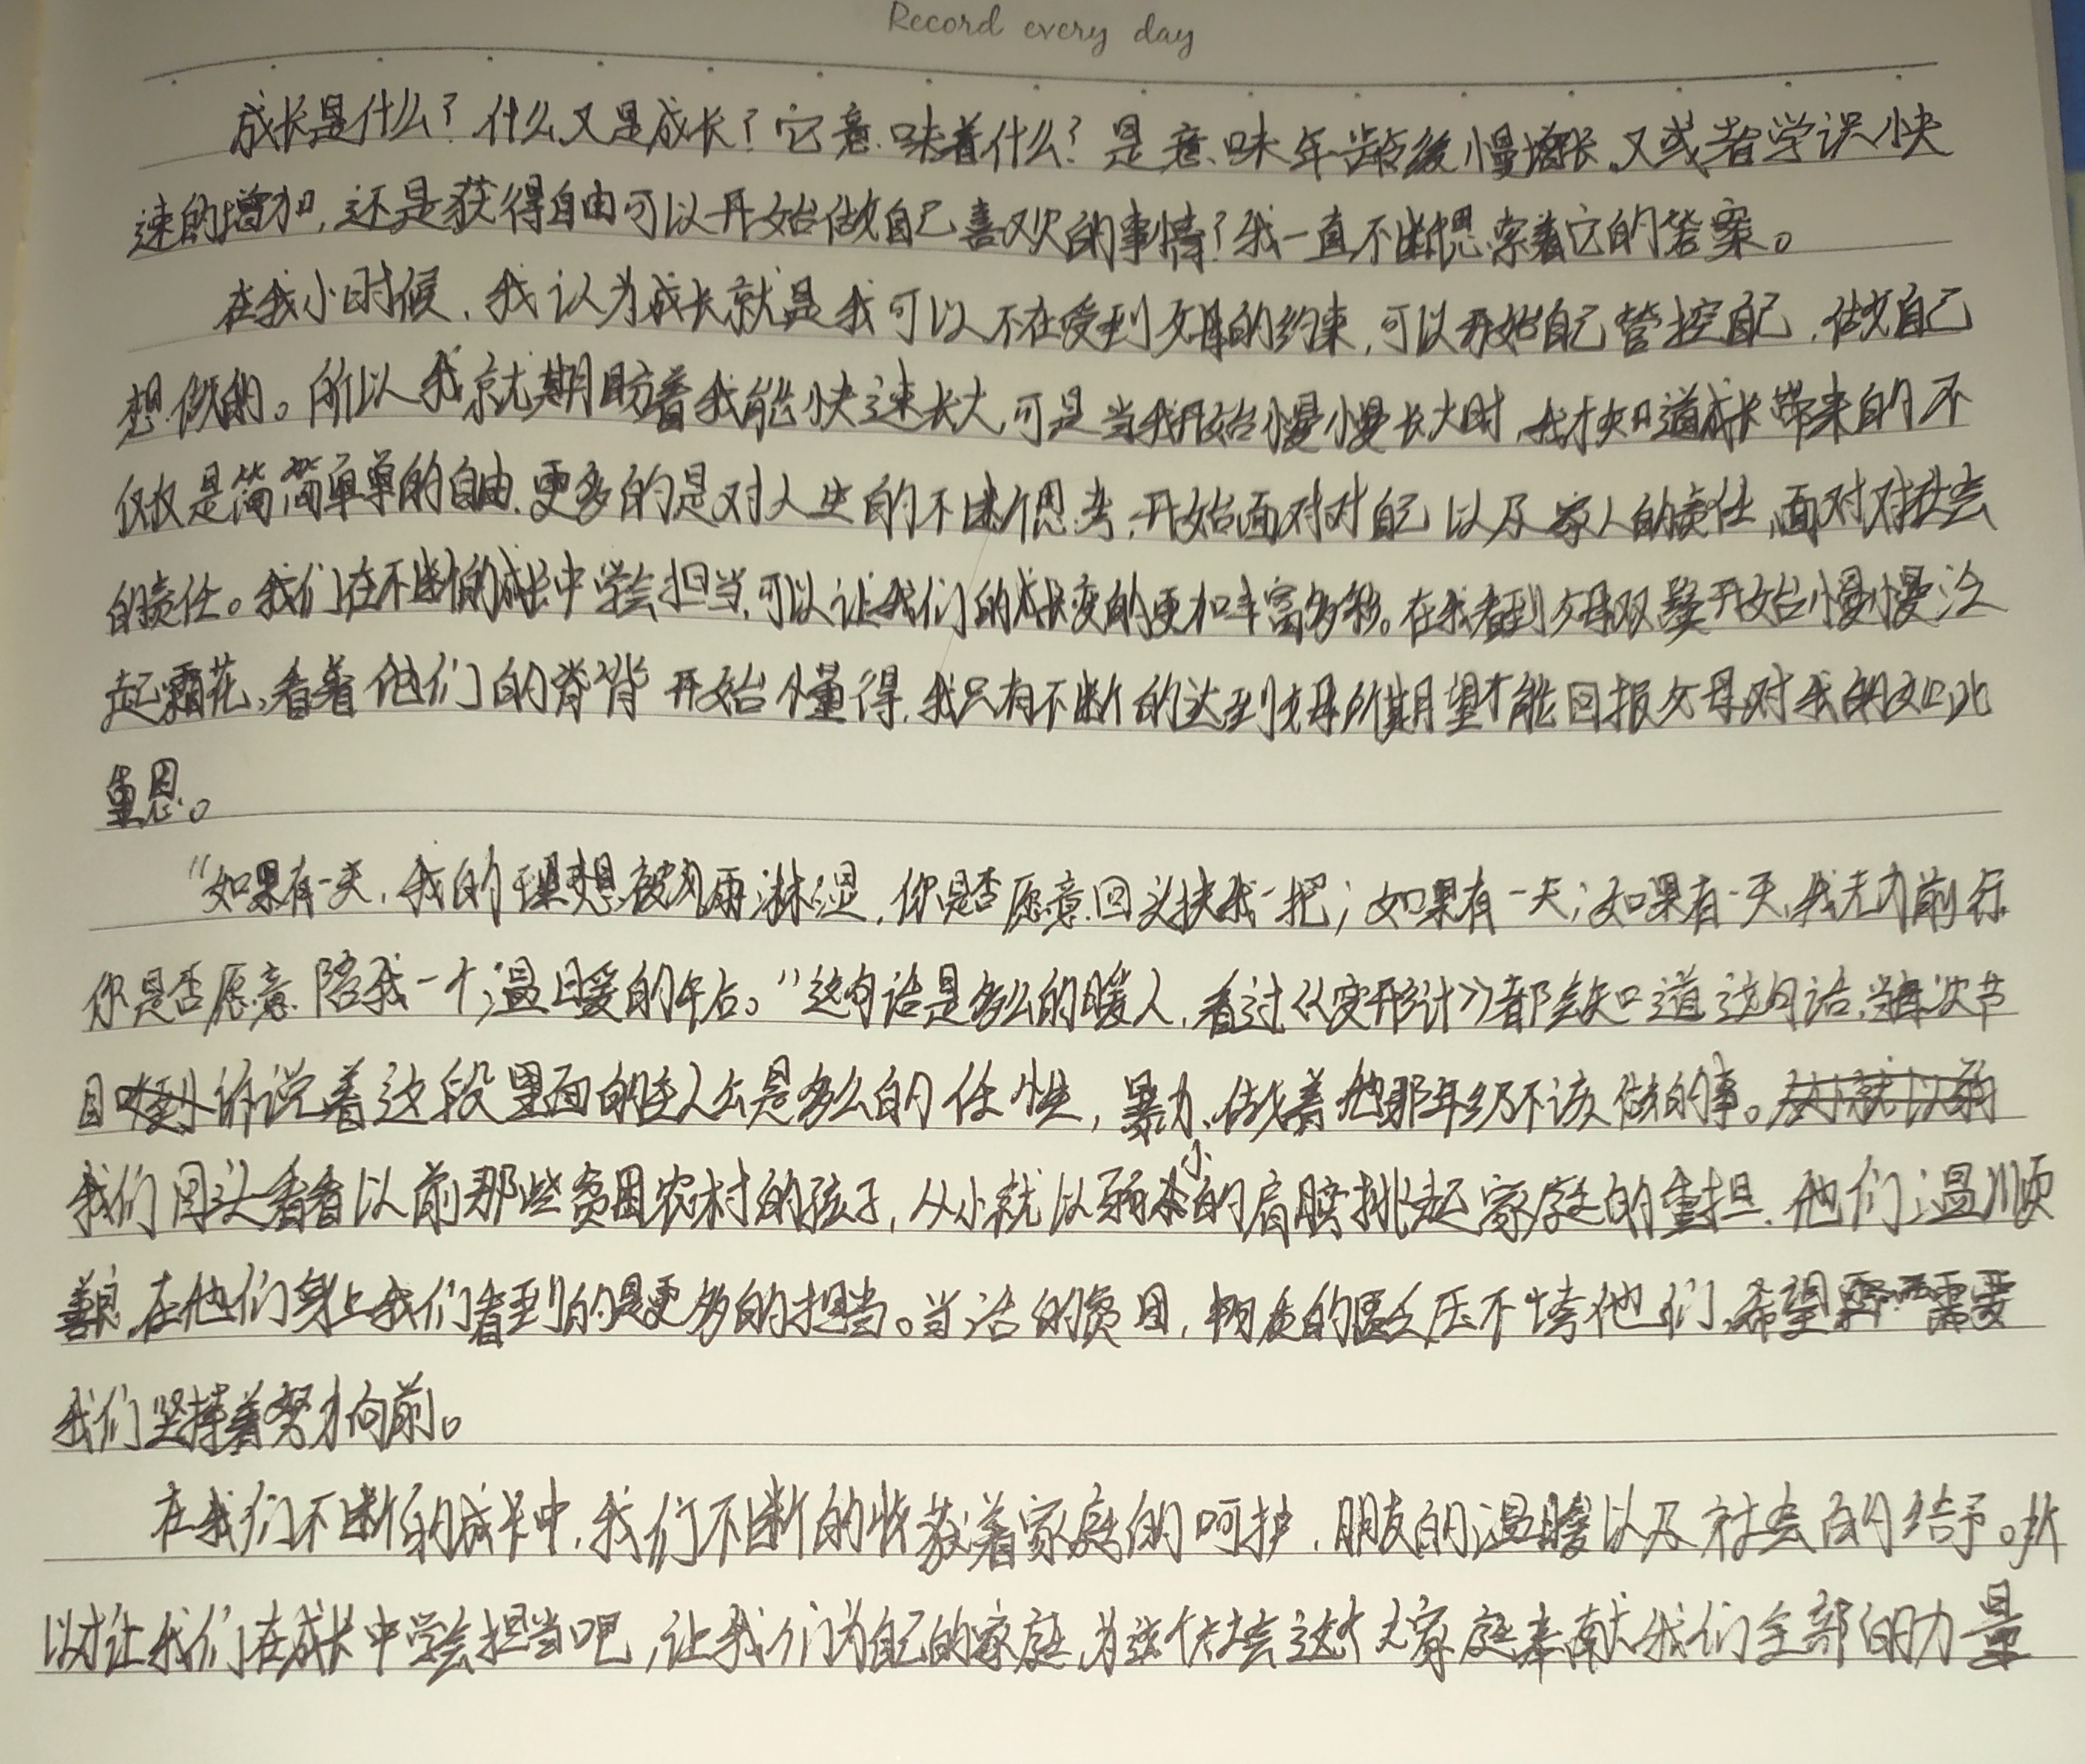 Record every day
成长是什么？什么又是成长？它意味着什么？是意味年龄缓慢增长，又或者学识快
速的增加，还是获得自由可以开始做自己喜欢的事情？我一直不断思索着它的答案。
在我小时候，我认为成长就是我可以不在受到父母的约束，可以开始自己管控自己，做自己
想做的。所以我就期盼着我能快速长大，可是当我开始慢慢长大时，我才知道成长带来的不
仅仅是简简单单的自由，更多的是对人生的不断思考，开始面对对自己以及家人的责任，面对对社会
的责任。我们在不断的成长中学会担当，可以让我们的成长变的更加丰富多彩。在我看到父母双鬓开始慢慢泛
起霜花，看着他们的脊背开始懂得，我只有不断的达到父母所期望才能回报父母对我的如此
重恩。
“如果有一天，我的理想被风雨淋湿，你是否愿意回头扶我一把；如果有一天；如果有一天，我无力前行
你是否愿意陪我一个温暖的午后。”这句话是多么的暖人，看过《变形计》都会知道这句话，当每次节
目诉说着这段里面的主人公是多么的任性，暴力、做着他那年纪不该做的事。
我们回头看看以前那些贫困农村的孩子，从小就以弱小的肩膀挑起家庭的重担，他们温顺
善良，在他们身上我们看到的是更多的担当。生活的贫困，物质的匮乏压不垮他们，希望需要
我们坚持着努力向前。
在我们不断的成长中，我们不断的收获着家庭的呵护，朋友的温暖以及社会的给予。所
以才让我们在成长中学会担当吧，让我们为自己的家庭，为这个社会这个大家庭奉献我们全部的力量